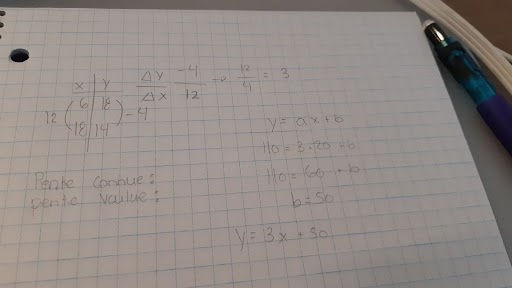 x | y
6 | 18
18 | 14
12 ( ) -4
Δy/Δx -4/12 → 12/4 = 3
y = ax + b
110 = 3·20 + b
110 = 60 + b
b = 50
y = 3x + 50
Pente connue:
pente value: